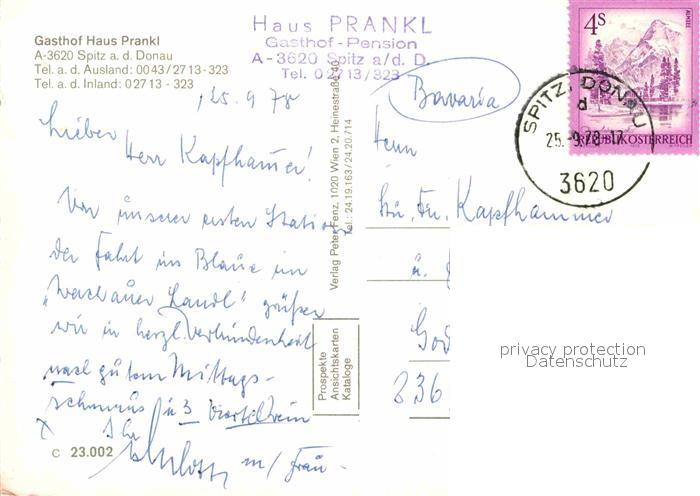 Gasthof Haus Prankl
A-3620 Spitz a. d. Donau
Tel. a. d. Ausland: 0043/2713-323
Tel. a. d. Inland: 02713 - 323
Haus PRANKL
Gasthof-Pension
A-3620 Spitz a/d. D.
Tel. 02713/323
25.9.78
Lieber
Herr Kapfhammer!
Von unserer ersten Station
der Fahrt ins Blaue im
"Wachauer Landl" grüßen
wir in herzl. Verbundenheit
nach gutem Mittags-
schmaus u 3 Viertel Wein
Ihr
m/ Frau
C 23.002
Verlag Peter Fenz, 1020 Wien 2, Heinestraße
Tel.: 24.19.163/24.20.714
Prospekte
Ansichtskarten
Kataloge
Bavaria
Herrn
Kapfhammer
836
4S
ALMSEE
REPUBLIK ÖSTERREICH
SPITZ, DONAU
d
25.-9.78-17
3620
privacy protection
Datenschutz